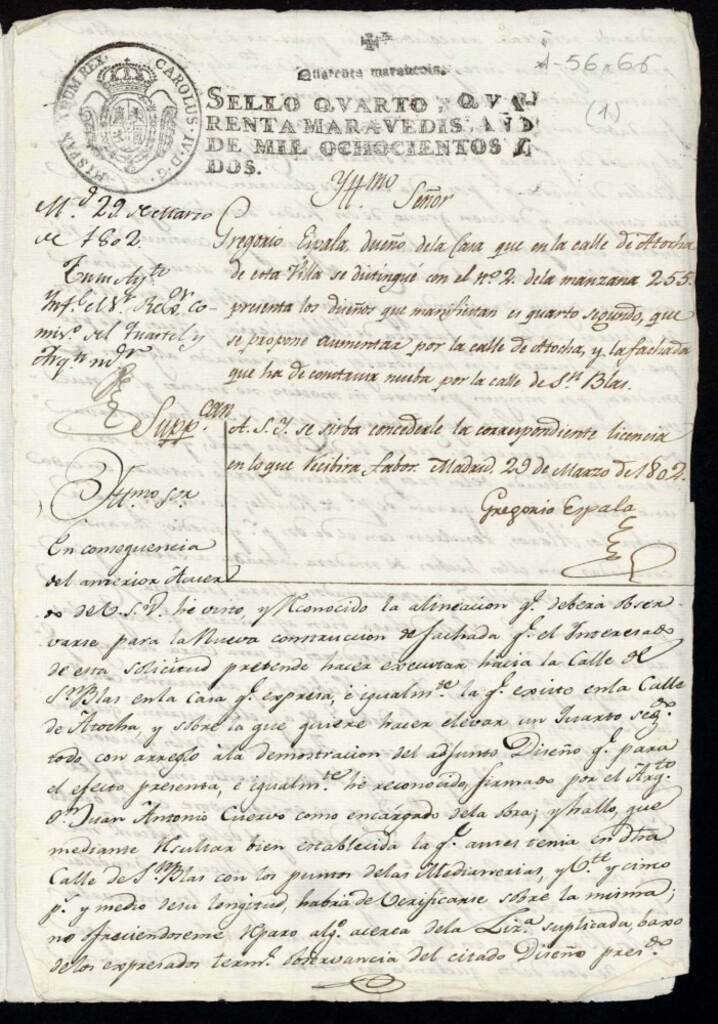 Quarenta maravedis.
1-56-66
(1)
HISPANIARUM REX. CAROLUS. IV. D. G.
SELLO QVARTO, QVA
RENTA MARAVEDIS, AÑO
DE MIL OCHOCIENTOS Y
DOS.
Yllmo. Señor
Md. 29 de Marzo
de 1802
Inf.e el Sr. Regor. co-
mis.o del Quartel y
Arqto mor
Gregorio Espala, dueño dela Casa que en la calle de Atocha
de esta Villa se distingue con el nº 2. dela manzana 255.
presenta los diseños que manifiestan es quarto segundo, que
se propone aumentar por la calle de Atocha, y la fachada
que ha de construir nueba por la calle de Sn. Blas.
Suppcan
A. S. Y. se sirba concederle la correspondiente licencia
en lo que recibira fabor. Madrid. 29 de Marzo de 1802.
Gregorio Espala
Yllmo sor.
En consequencia
del anterior Acuer
do de V.S.Y. he visto, y reconocido la alineacion q.e debera obser-
varse para la Nueva construccion de fachada q.e el Interesado
de esta solicitud pretende hacer executar hacia la Calle de
Sn Blas en la Casa q.e expresa, e igualmte. la q.e existe en la Calle
de Atocha, y sobre la que quiere hacer elevar un Quarto segdo.
todo con arreglo à la demostracion del adjunto Diseño q.e para
el efecto presenta, e igualmte. he reconocido, firmado por el Arqto.
Dn. Juan Antonio Cuervo como encargado dela obra; y hallo, que
mediante resultar bien establecida la q.e antes tenia en dha
Calle de Sn Blas con los puntos delas Medianerias, y Vte. y cinco
ps. y medio de su longitud, habrá de Verificarse sobre la misma;
no ofreciendoseme reparo algo. acerca dela Liza. suplicada, baxo
de los expresados termos. observancia del citado Diseño presdo.